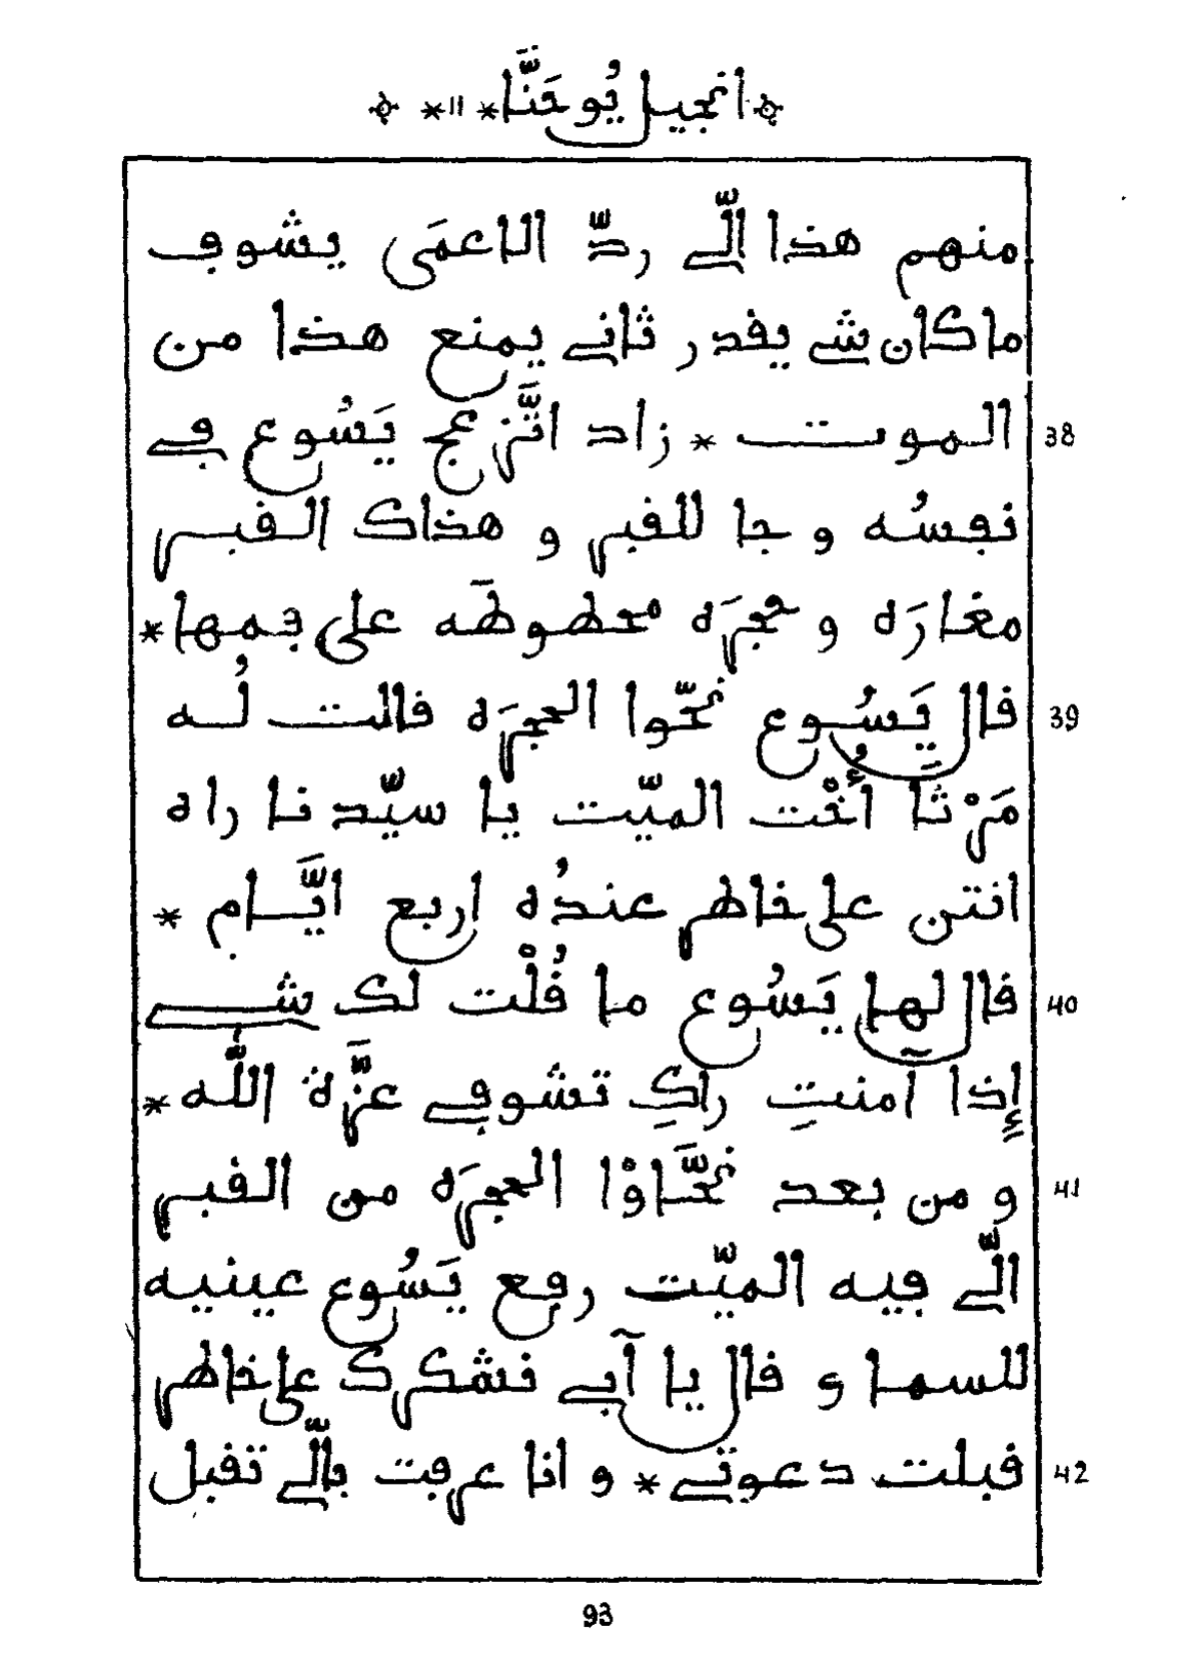 انجيل يُوحَنَّا * 11 *
منهم هذا الّي ردّ الاعمَى يشوف
ماكان شي يقدر ثاني يمنع هذا من
38 الموت * زاد انَّزعج يَسُوع في
نفسُه و جا للقبر و هذاك القبر
مغارَه و حجرَه محطوطَه على فمها *
39 قال يَسُوع نحّوا الحجرَه قالت لُه
مَرْثَا أُخْت الميّت يا سيّدنا راه
انتن على خاطر عندُه اربع ايَّام *
40 قال لها يَسُوع ما قُلْت لك شي
إذا آمنتِ راكِ تشوفي عزَّة اللّه *
41 و من بعد نحَّاوْا الحجرَه من القبر
الّي فيه الميّت رفع يَسُوع عينيه
للسما و قال يا آبي نشكرك على خاطر
42 قبلت دعوتي * و انا عرفت بالّي تقبل
93